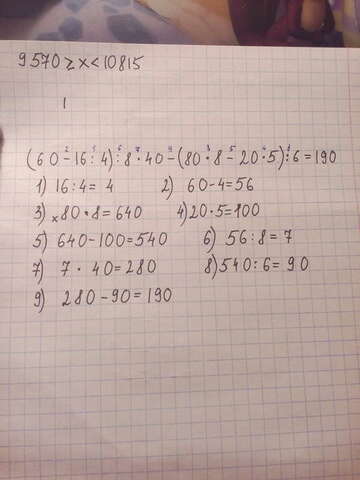 9570 ≥ x < 10815
1
(60-16:4):8·40-(80·8-20·5):6=190
1) 16:4= 4 2) 60-4=56
3) x80·8=640 4)20·5=100
5) 640-100=540 6) 56:8= 7
7) 7 · 40=280 8)540:6= 90
9) 280-90=190